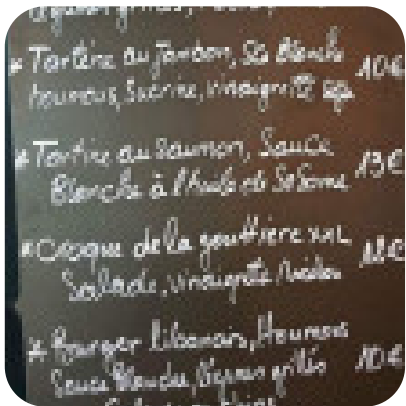 légumes grillés,
* Tartine au Jambon, Sce Blanche 10€
houmous, Sucrine, vinaigrette
* Tartine au saumon, Sauce 13€
Blanche à l'huile de Sésame
* Croque de la gouttière XXL 12€
Salade, vinaigrette
* Burger libanais, Houmous
Sauce Blanche, légumes grillés 10€